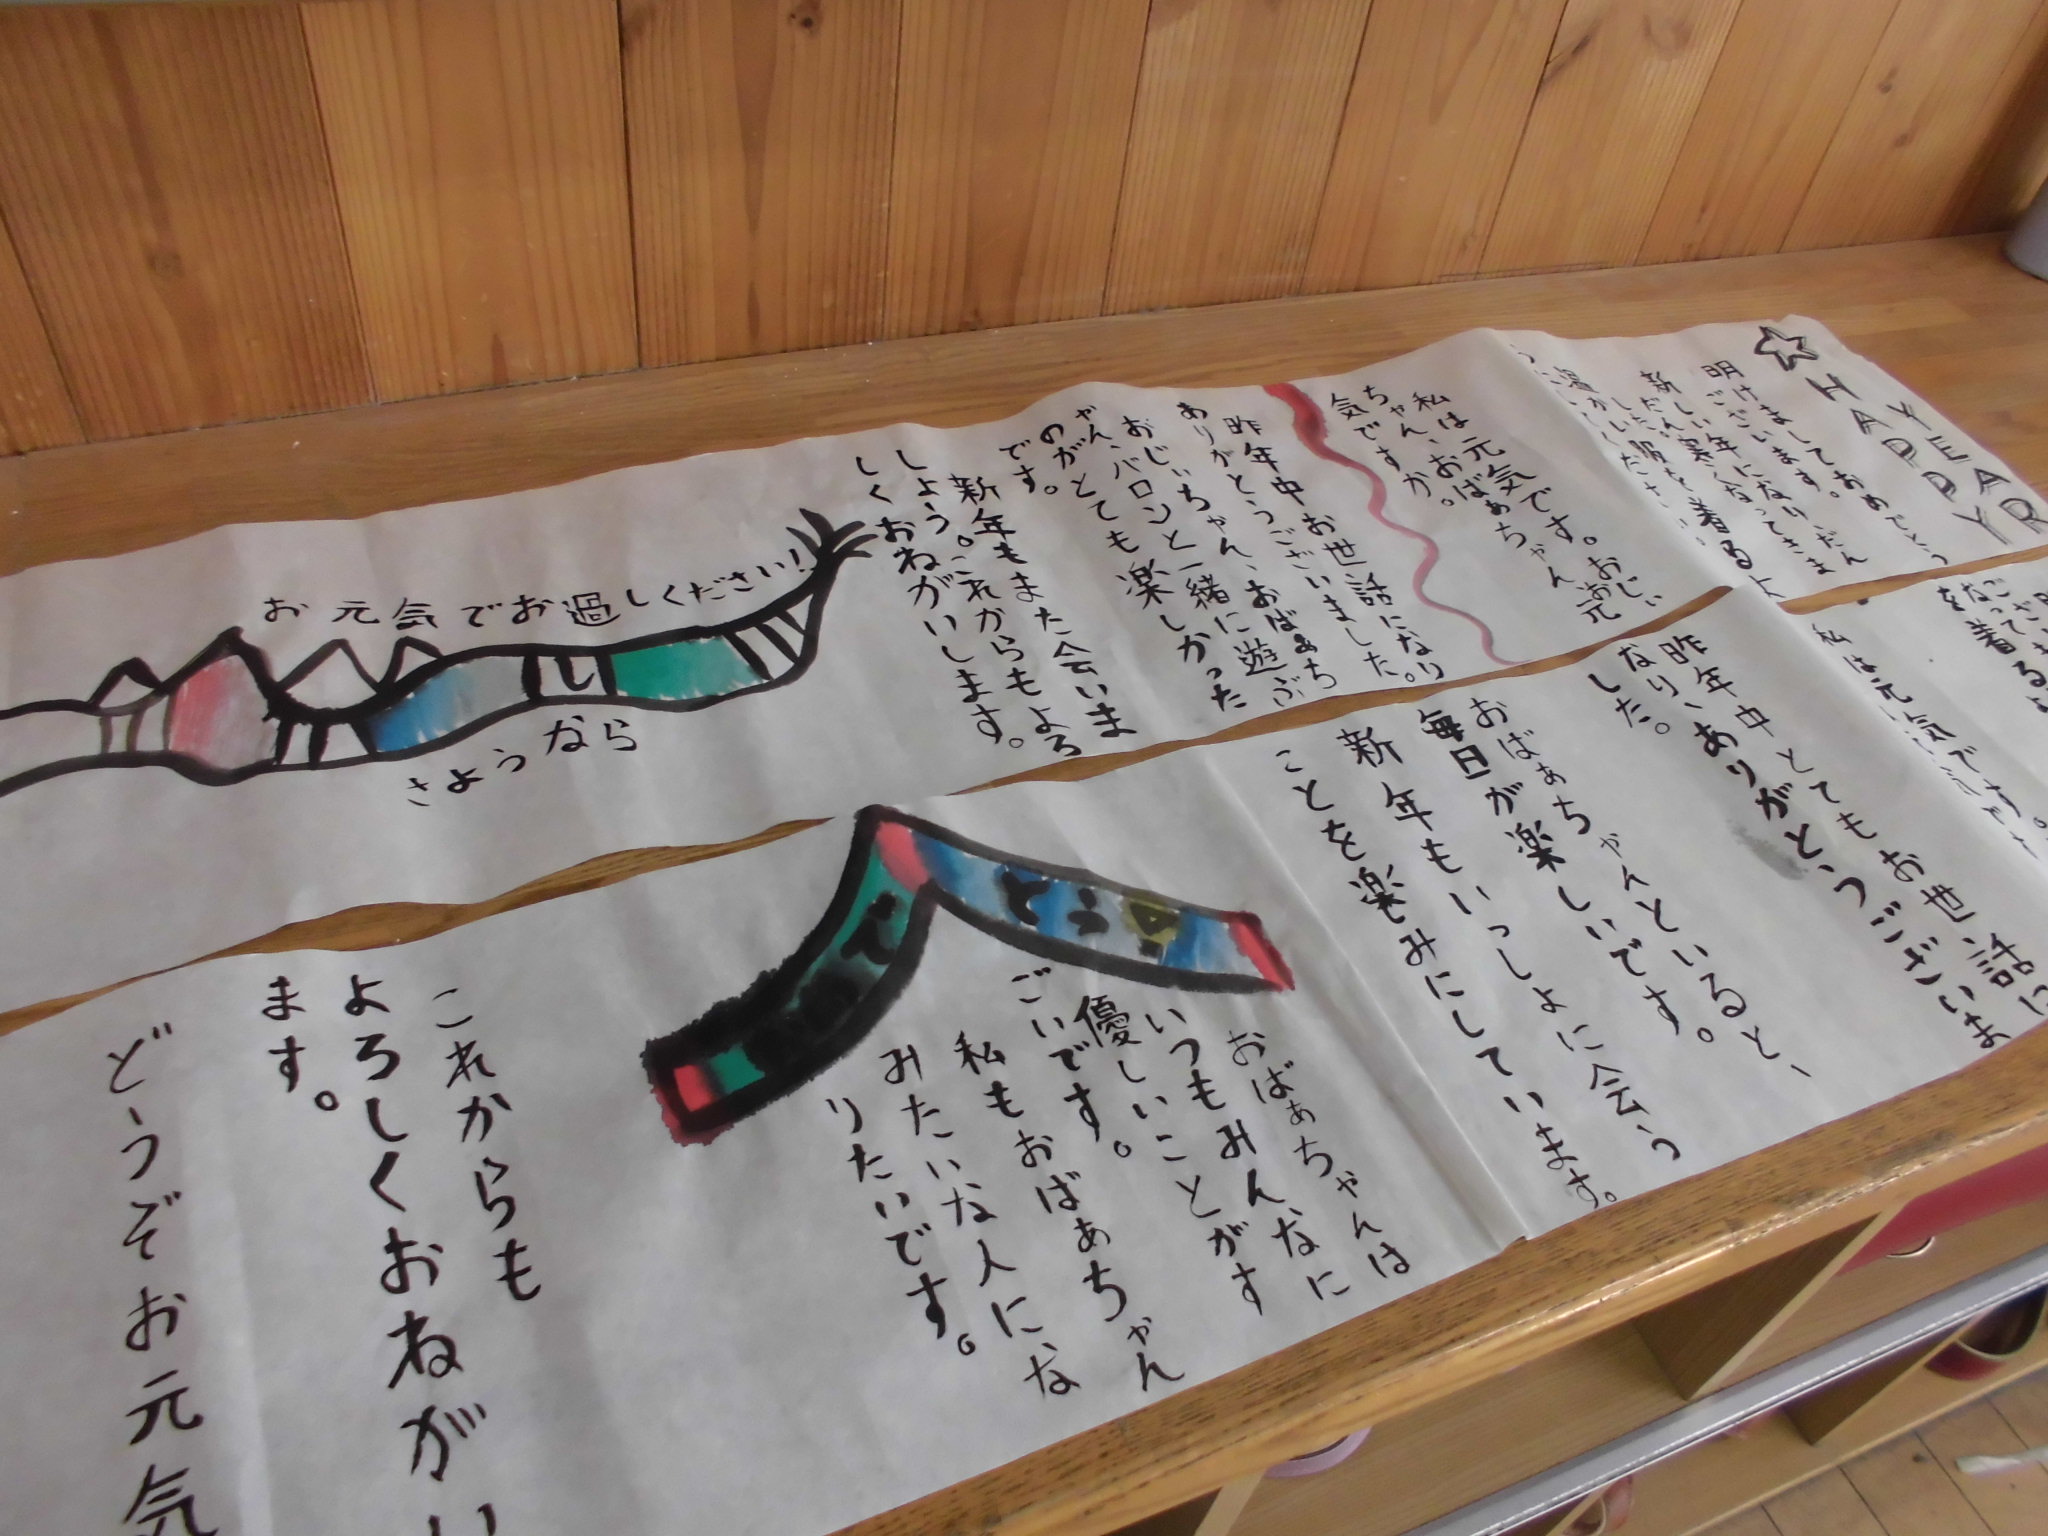 ☆ HAPPY
YEAR
明けましておめでとう
ございます。
新しい年になり、だん
だん寒くなってきま
私は元気です。おじい
ちゃん、おばぁちゃん、お元
気ですか。
昨年中お世話になり、
ありがとうございました。
おじいちゃん、おばぁち
ゃん、バロンと一緒に遊ぶ
のがとても楽しかった
です。
新年もまた会いま
しょう。これからもよろ
しくおねがいします。
お元気でお過しください!
さようなら
私は元気です。
昨年中とてもお世話に
なり、ありがとうございま
した。
おばぁちゃんといると、
毎日が楽しいです。
新年もいっしょに会う
ことを楽みにしています。
おばぁちゃんは
いつもみんなに
優しいことがす
ごいです。
私もおばぁちゃん
みたいな人にな
りたいです。
これからも
よろしくおねがい
ます。
どうぞお元気